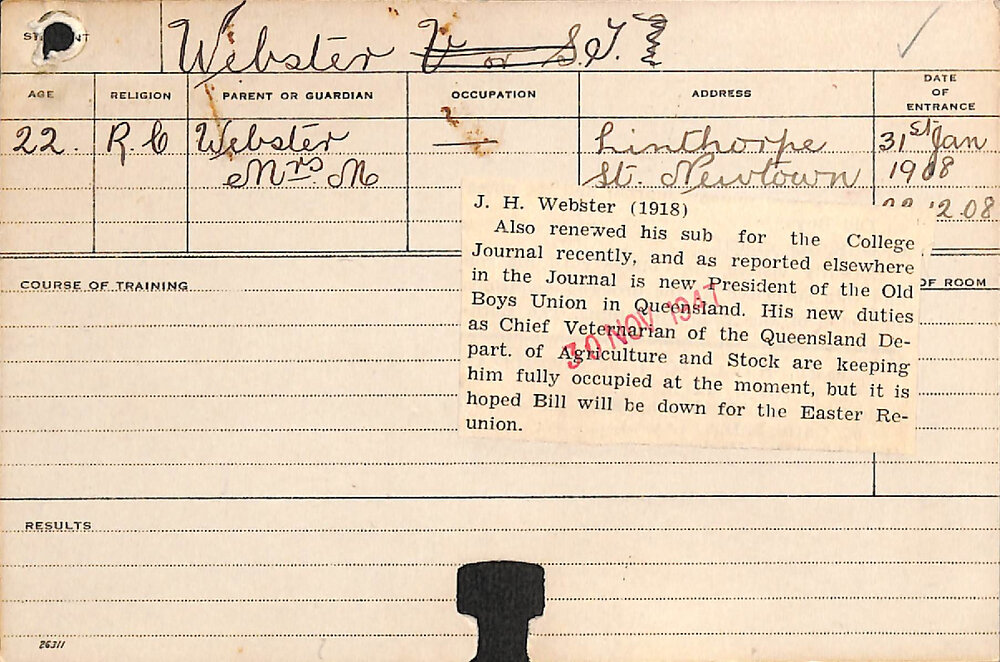 STUDENT
Webster V or S.J.
AGE
RELIGION
PARENT OR GUARDIAN
OCCUPATION
ADDRESS
DATE
OF
ENTRANCE
22. R.C Webster — Linthorpe 31st Jan
Mrs. M St. Newtown 1908
2.08
J. H. Webster (1918)
Also renewed his sub for the College
Journal recently, and as reported elsewhere
in the Journal is new President of the Old
Boys Union in Queensland. His new duties
as Chief Veternarian of the Queensland De-
part. of Agriculture and Stock are keeping
him fully occupied at the moment, but it is
hoped Bill will be down for the Easter Re-
union.
30 NOV 1947
COURSE OF TRAINING
OF ROOM
RESULTS
26311